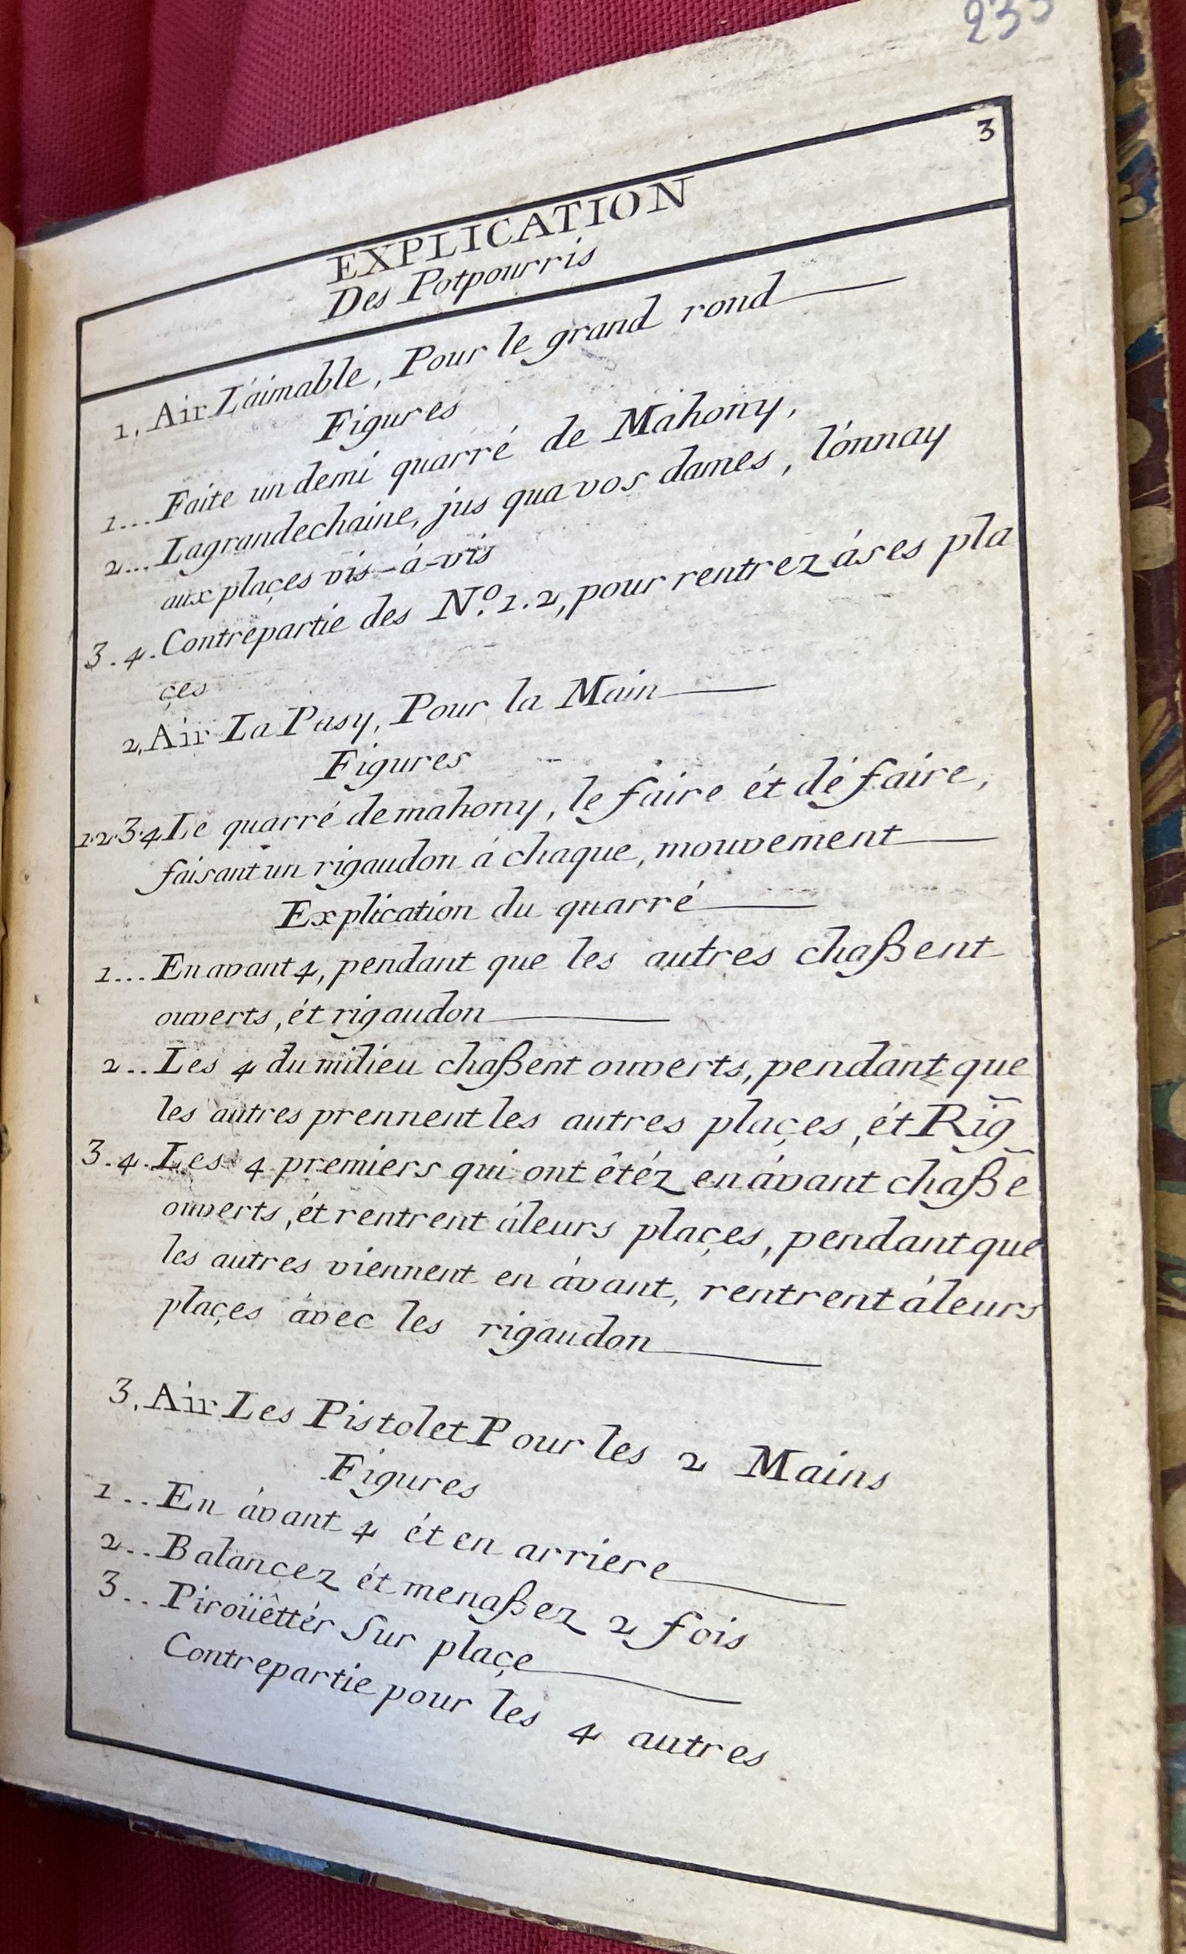 233
3
EXPLICATION
Des Potpourris
1, Air L'aimable, Pour le grand rond
Figures
1... Faite un demi quarré de Mahony,
2... Lagrandechaine, jus qua vos dames, l'onnay
aux plaçes vis-á-vis
3.4. Contrepartie des Nº. 1.2, pour rentrez áses pla
çes
2, Air La Pasy, Pour la Main
Figures
1.2.3.4 Le quarré demahony, le faire ét dé faire,
faisant un rigaudon á chaque, mouvement
Explication du quarré
1... Enavant 4, pendant que les autres chaßent
ouverts, ét rigaudon
2.. Les 4 du milieu chaßent ouverts, pendant que
les autres prennent les autres plaçes, ét Rig̅
3.4. Les 4 premiers qui ont êtéz enávant chaße̅
ouverts, ét rentrent áleurs plaçes, pendantque
les autres viennent en ávant, rentrent áleurs
plaçes ávec les rigaudon
3, Air Les Pistolet Pour les 2 Mains
Figures
1.. En ávant 4 ét en arriere
2.. Balancez ét menaßez 2 fois
3.. Piroüêttér Sur plaçe
Contrepartie pour les 4 autres